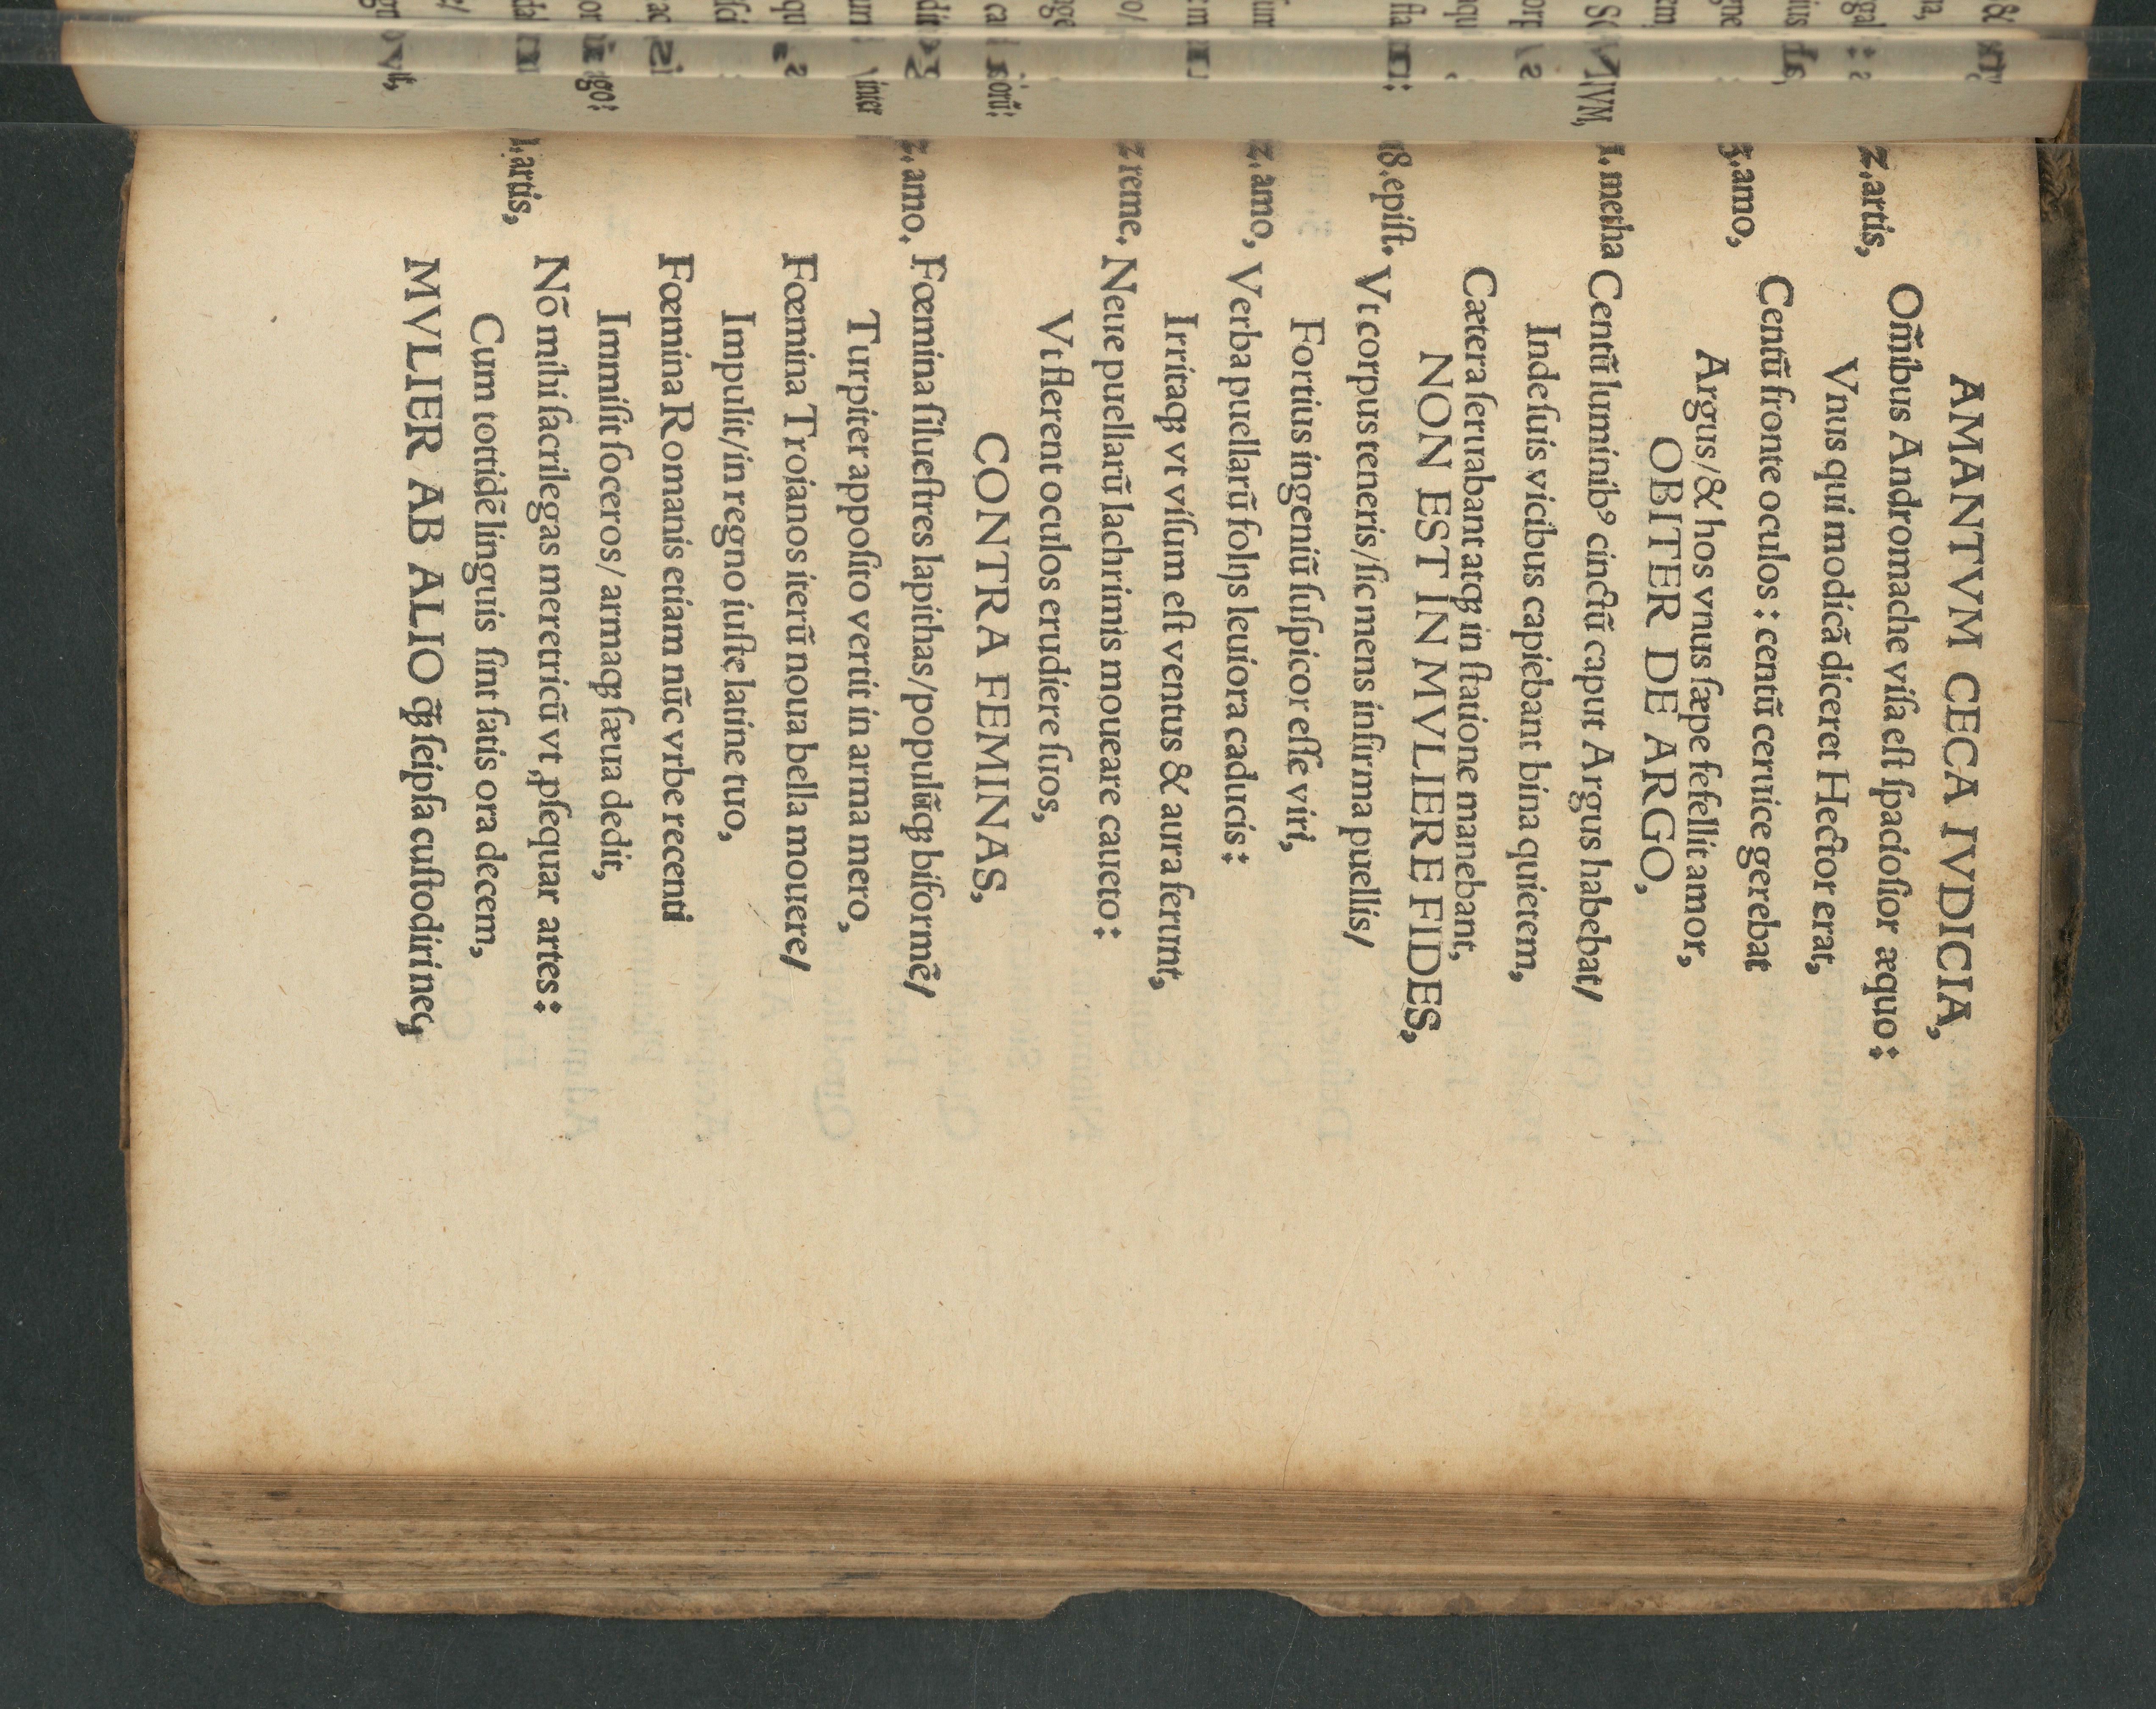 AMANTVM CECA IVDICIA,
z.artis, Om̄ibus Andromache viſa eſt ſpacioſior æquo:
Vnus qui modicā diceret Hector erat,
3.amo, Centū fronte oculos: centū ceruice gerebat
Argus/& hos vnus ſæpe fefellit amor,
OBITER DE ARGO,
1. metha Centū luminibꝰ cinctū caput Argus habebat/
Inde ſuis vicibus capiebant bina quietem,
Cætera ſeruabant atqꝫ in ſtatione manebant,
NON EST IN MVLIERE FIDES,
18.epiſt. Vt corpus teneris/ſic mens infirma puellis/
Fortius ingeniū ſuſpicor eſſe viri,
z. amo, Verba puellarū folijs leuiora caducis:
Irritaqꝫ vt viſum eſt ventus & aura ferunt,
z reme. Neue puellarū lachrimis moueare caueto:
Vt flerent oculos erudiere ſuos,
CONTRA FEMINAS,
z. amo. Fœmina ſilueſtres lapithas/populūqꝫ biformē/
Turpiter appoſito vertit in arma mero,
Fœmina Troianos iterū noua bella mouere/
Impulit/in regno iuſte latine tuo,
Fœmina Romanis etiam nūc vrbe recenti
Immiſit ſoceros/ armaqꝫ ſæua dedit,
1.artis, Nō mihi ſacrilegas meretricū vt ꝓſequar artes:
Cum totidē linguis ſint ſatis ora decem,
MVLIER AB ALIO q̄ꝫ ſeipſa cuſtodiri neq,